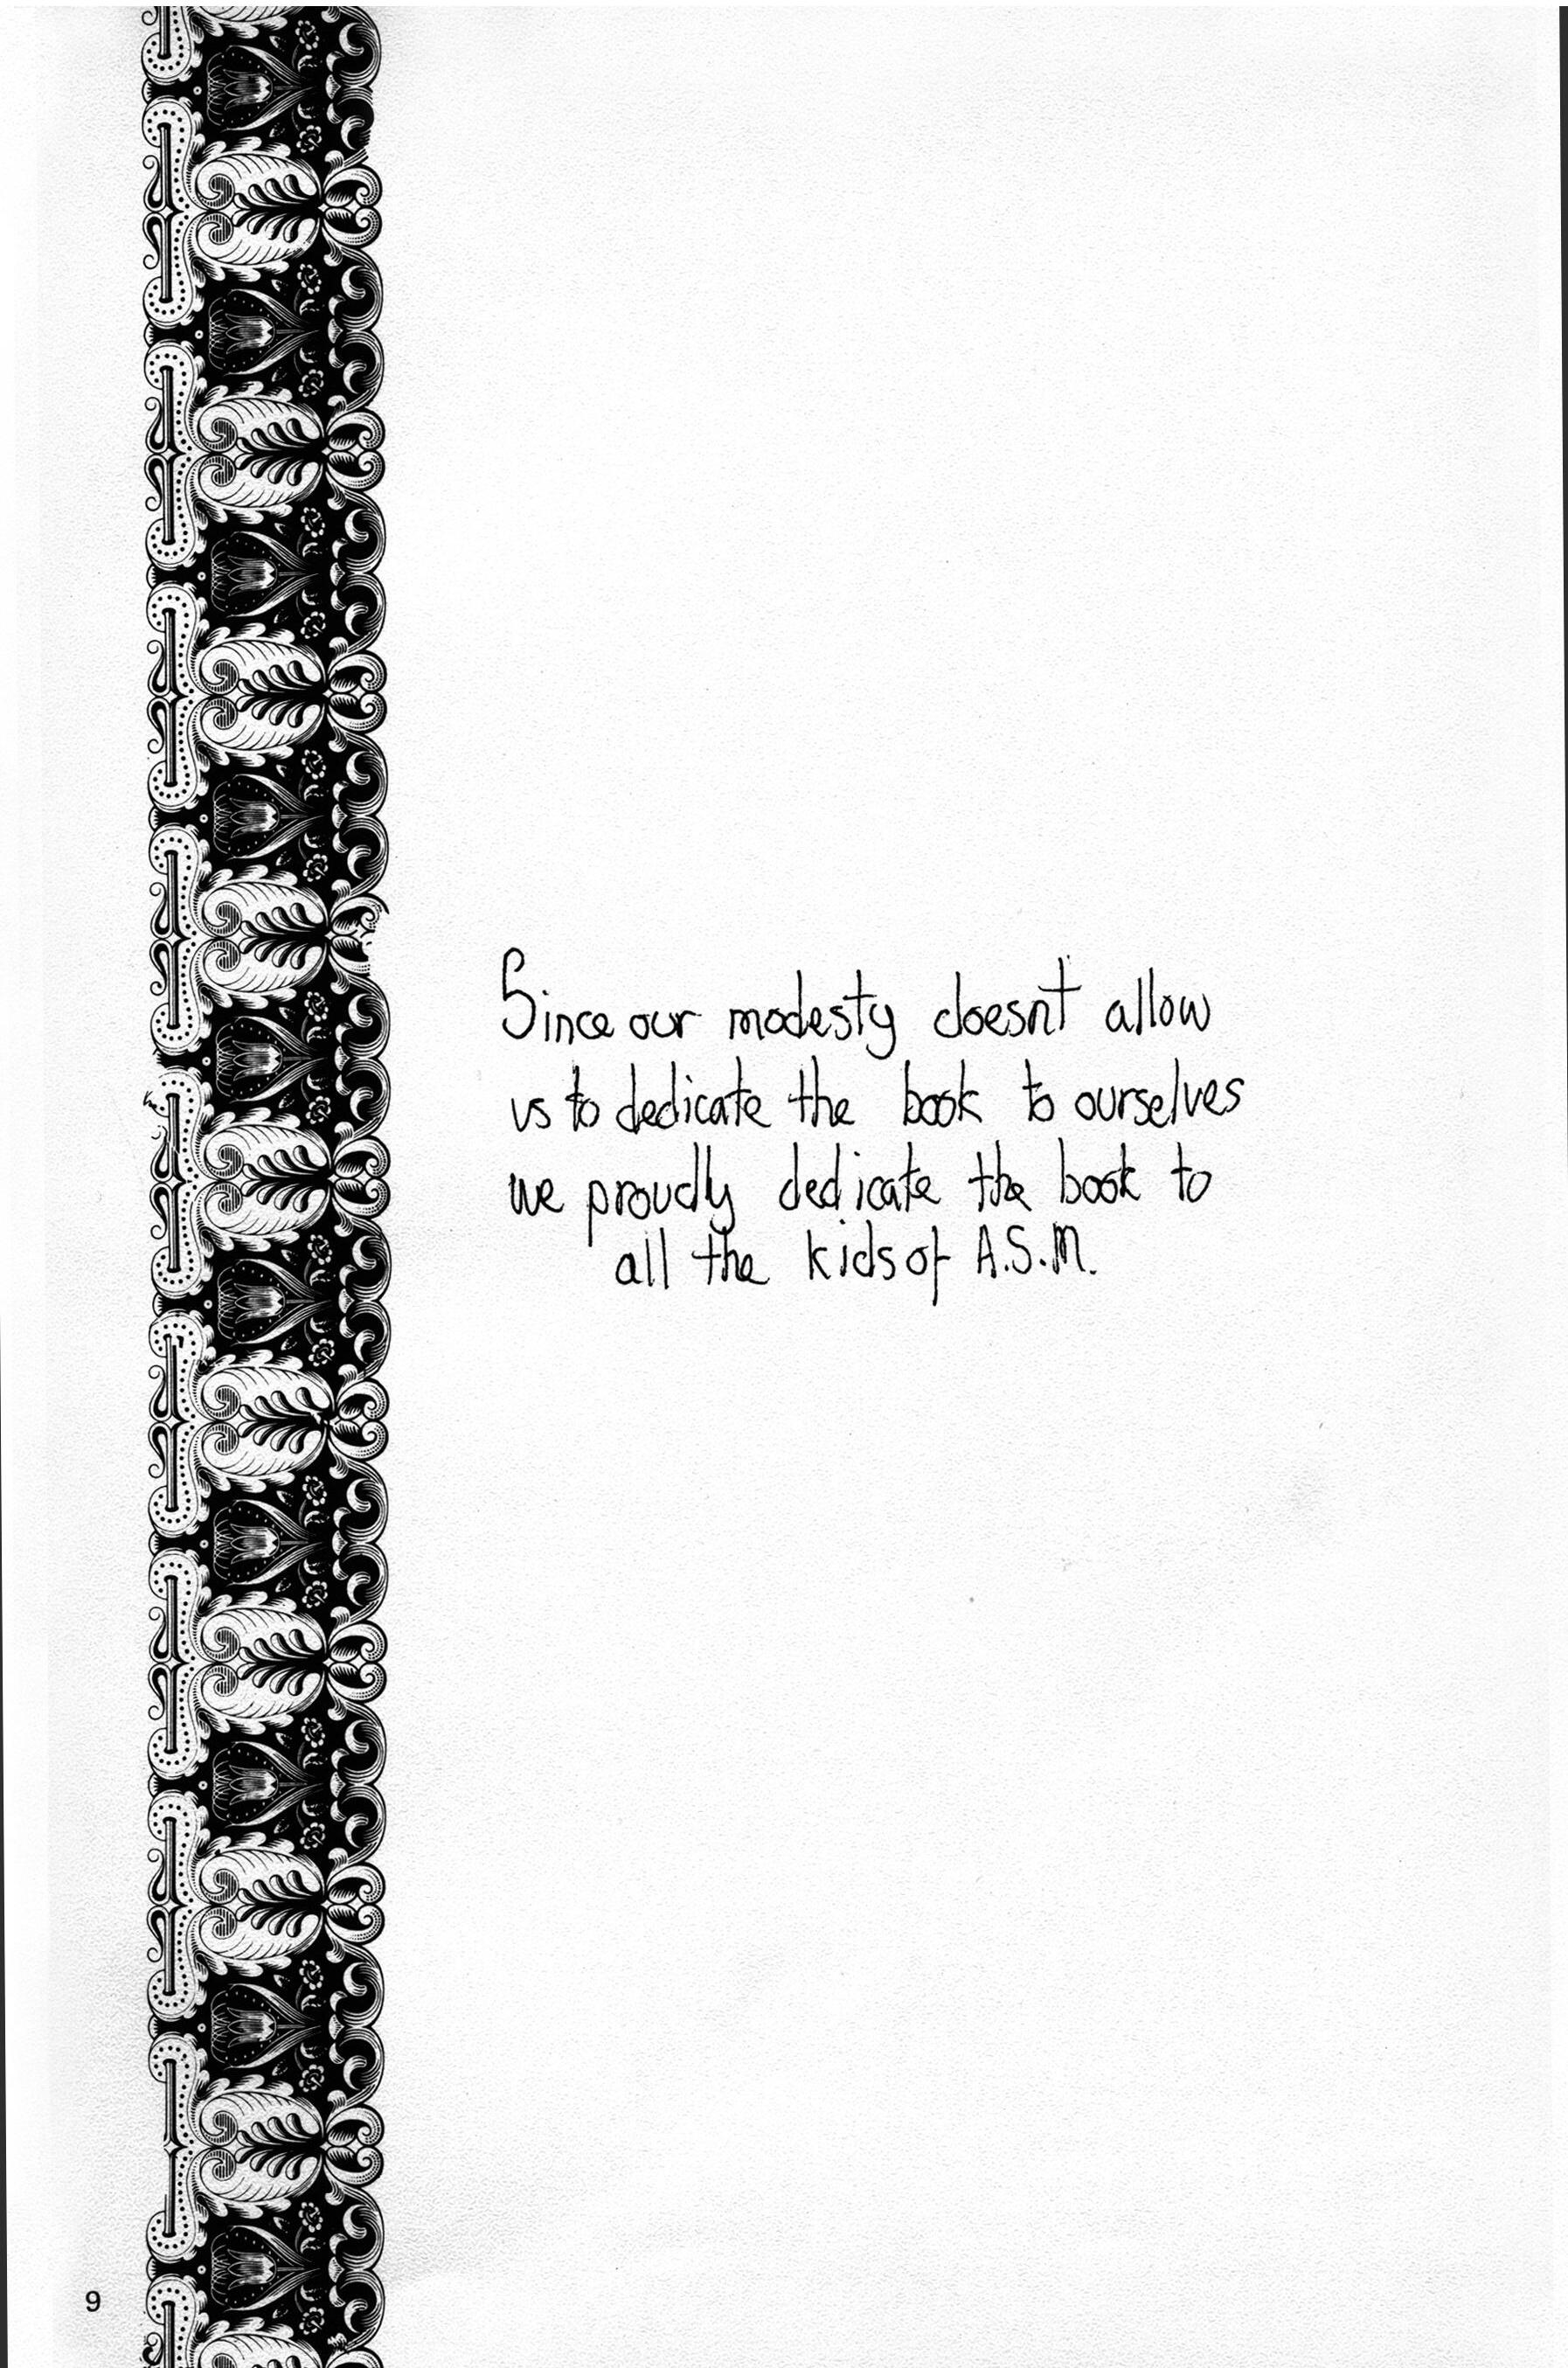 Since our modesty doesnt allow
us to dedicate the book to ourselves
we proudly dedicate the book to
all the kids of A.S.M.
9